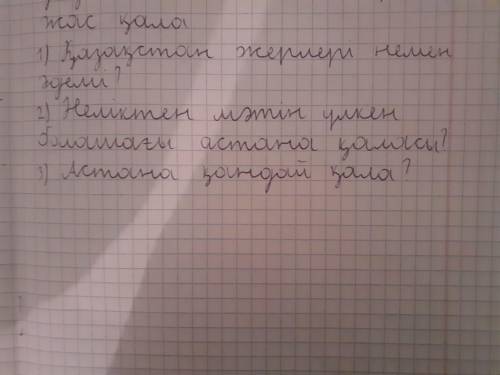 жас қала
1) Қазақстан жерлері немен
әдемі?
2) Неліктен мәтін үлкен
болашағы астана қаласы?
3) Астана қандай қала?